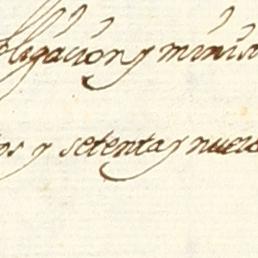 obligacion y minis
tos y setenta y nueve